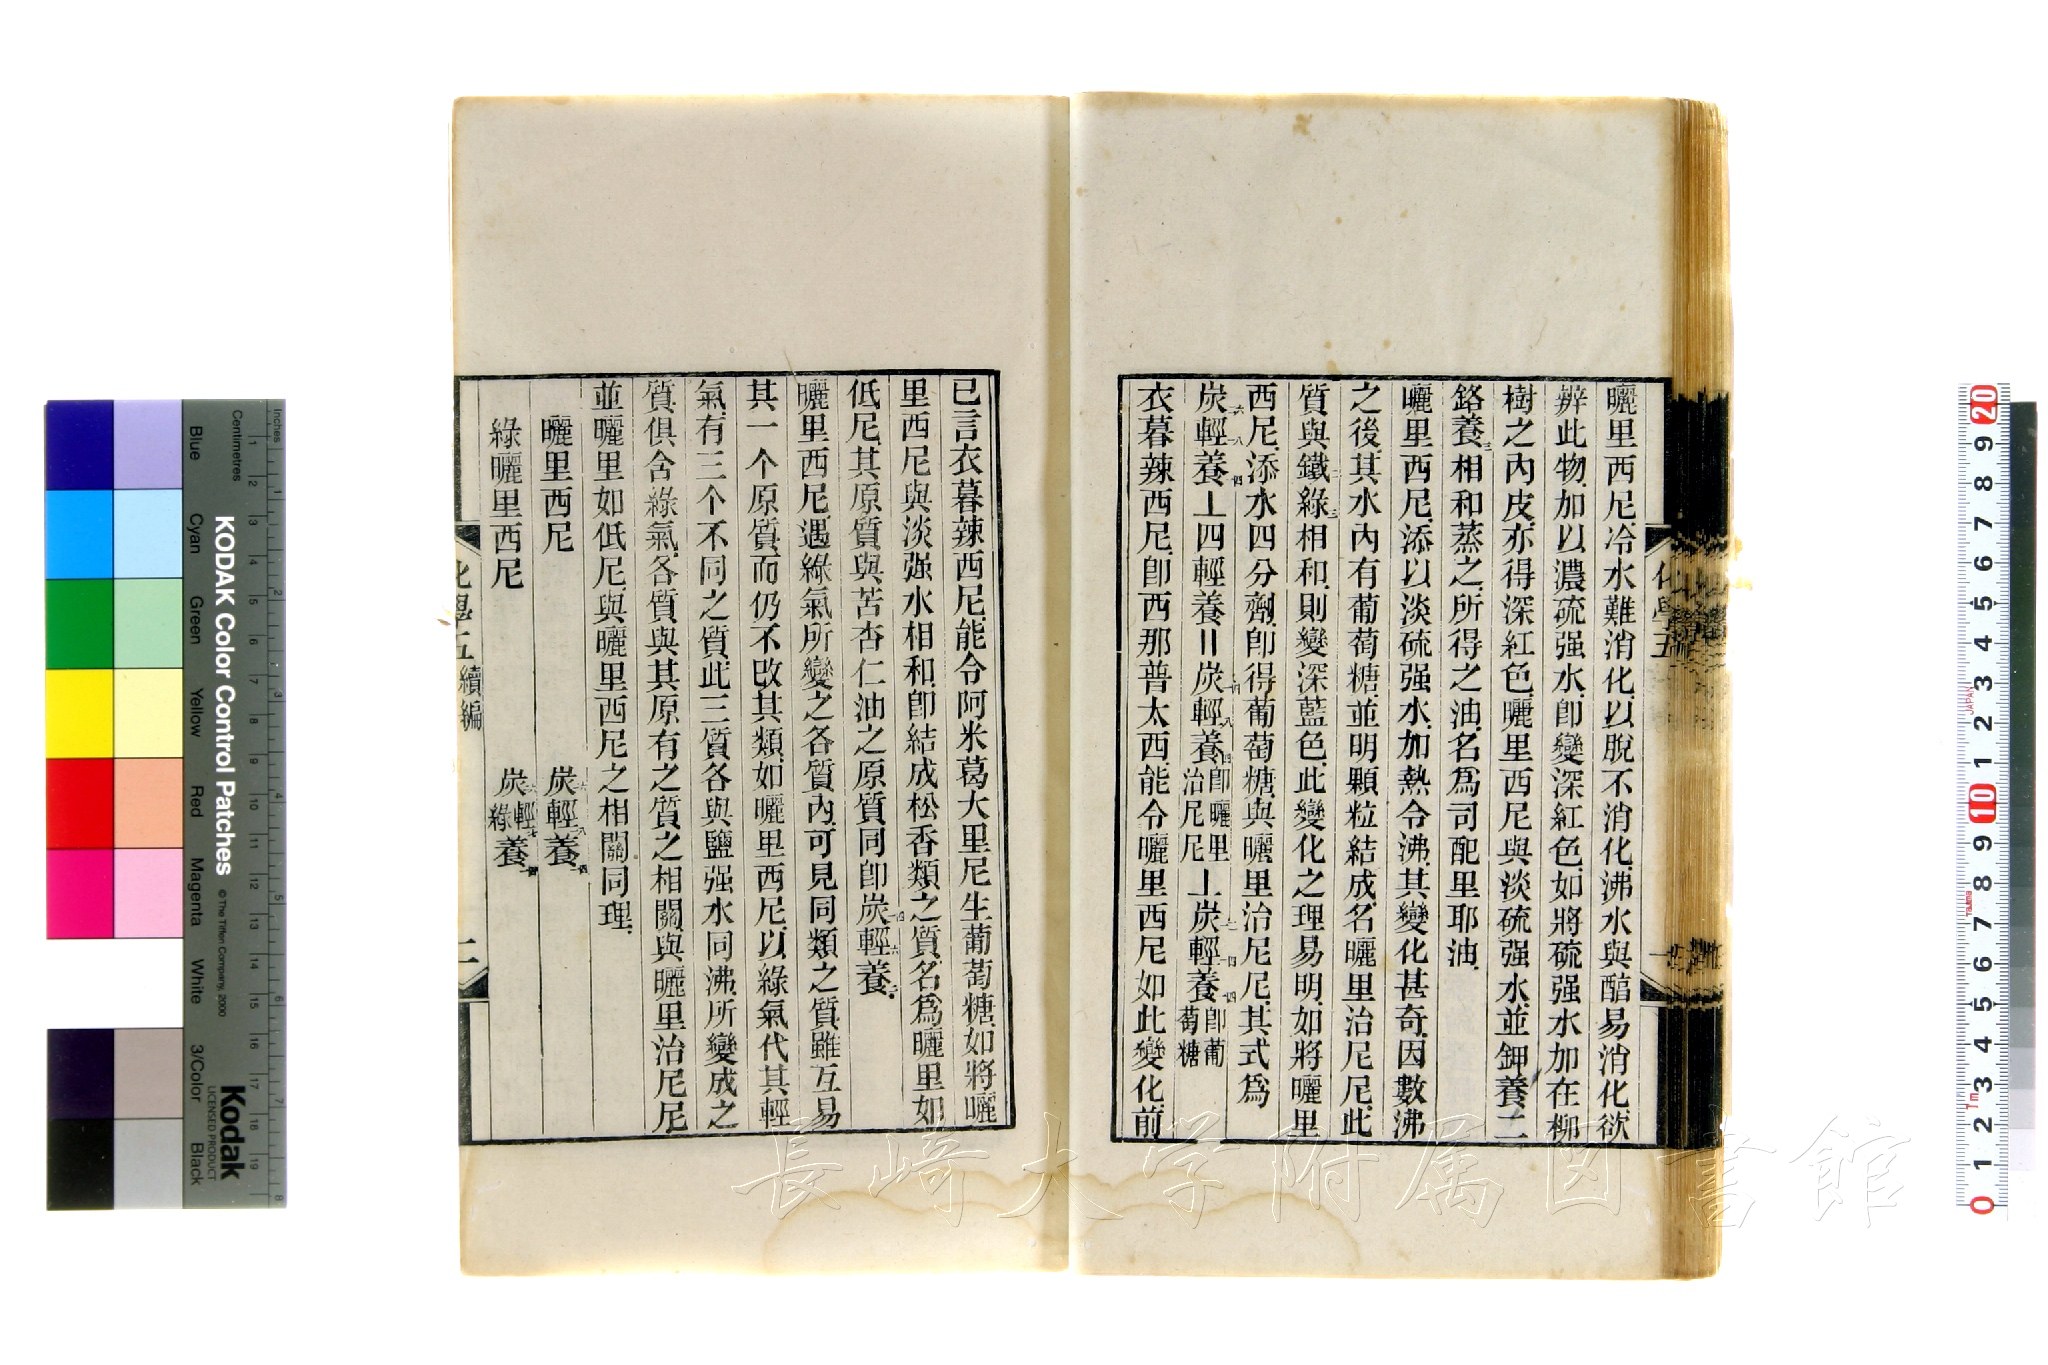 曬里西尼冷水難消化以脫不消化沸水與醕易消化欲
辨此物加以濃硫强水卽變深紅色如將硫强水加在柳
樹之內皮亦得深紅色曬里西尼與淡硫强水並鉀養二
鉻養三相和蒸之所得之油名爲司配里耶油
曬里西尼添以淡硫强水加熱令沸其變化甚奇因數沸
之後其水內有葡萄糖並明顆粒結成名曬里治尼尼此
質與鐵二綠三相和則變深藍色此變化之理易明如將曬里
西尼添水四分劑卽得葡萄糖與曬里治尼尼其式爲
炭輕養⊥四輕養=炭輕養卽曬里治尼尼⊥炭輕養卽葡萄糖
衣暮辣西尼卽西那普太西能令曬里西尼如此變化前
化學五
已言衣暮辣西尼能令阿米葛大里尼生葡萄糖如將曬
里西尼與淡强水相和卽結成松香類之質名爲曬里如
低尼其原質與苦杏仁油之原質同卽炭輕養
曬里西尼遇綠氣所變之各質內可見同類之質雖互易
其一个原質而仍不改其類如曬里西尼以綠氣代其輕
氣有三个不同之質此三質各與鹽强水同沸所變成之
質俱含綠氣各質與其原有之質之相關與曬里治尼尼
並曬里如低尼與曬里西尼之相關同理
曬里西尼 炭輕養
綠曬里西尼 炭輕綠養
化學五 續編
二
KODAK Color Control Patches
© The Tiffen Company, 2000
Kodak
LICENSED PRODUCT
Inches
Centimetres
Blue
Cyan
Green
Yellow
Red
Magenta
White
3/Color
Black
JAPAN
長崎大学附属図書館